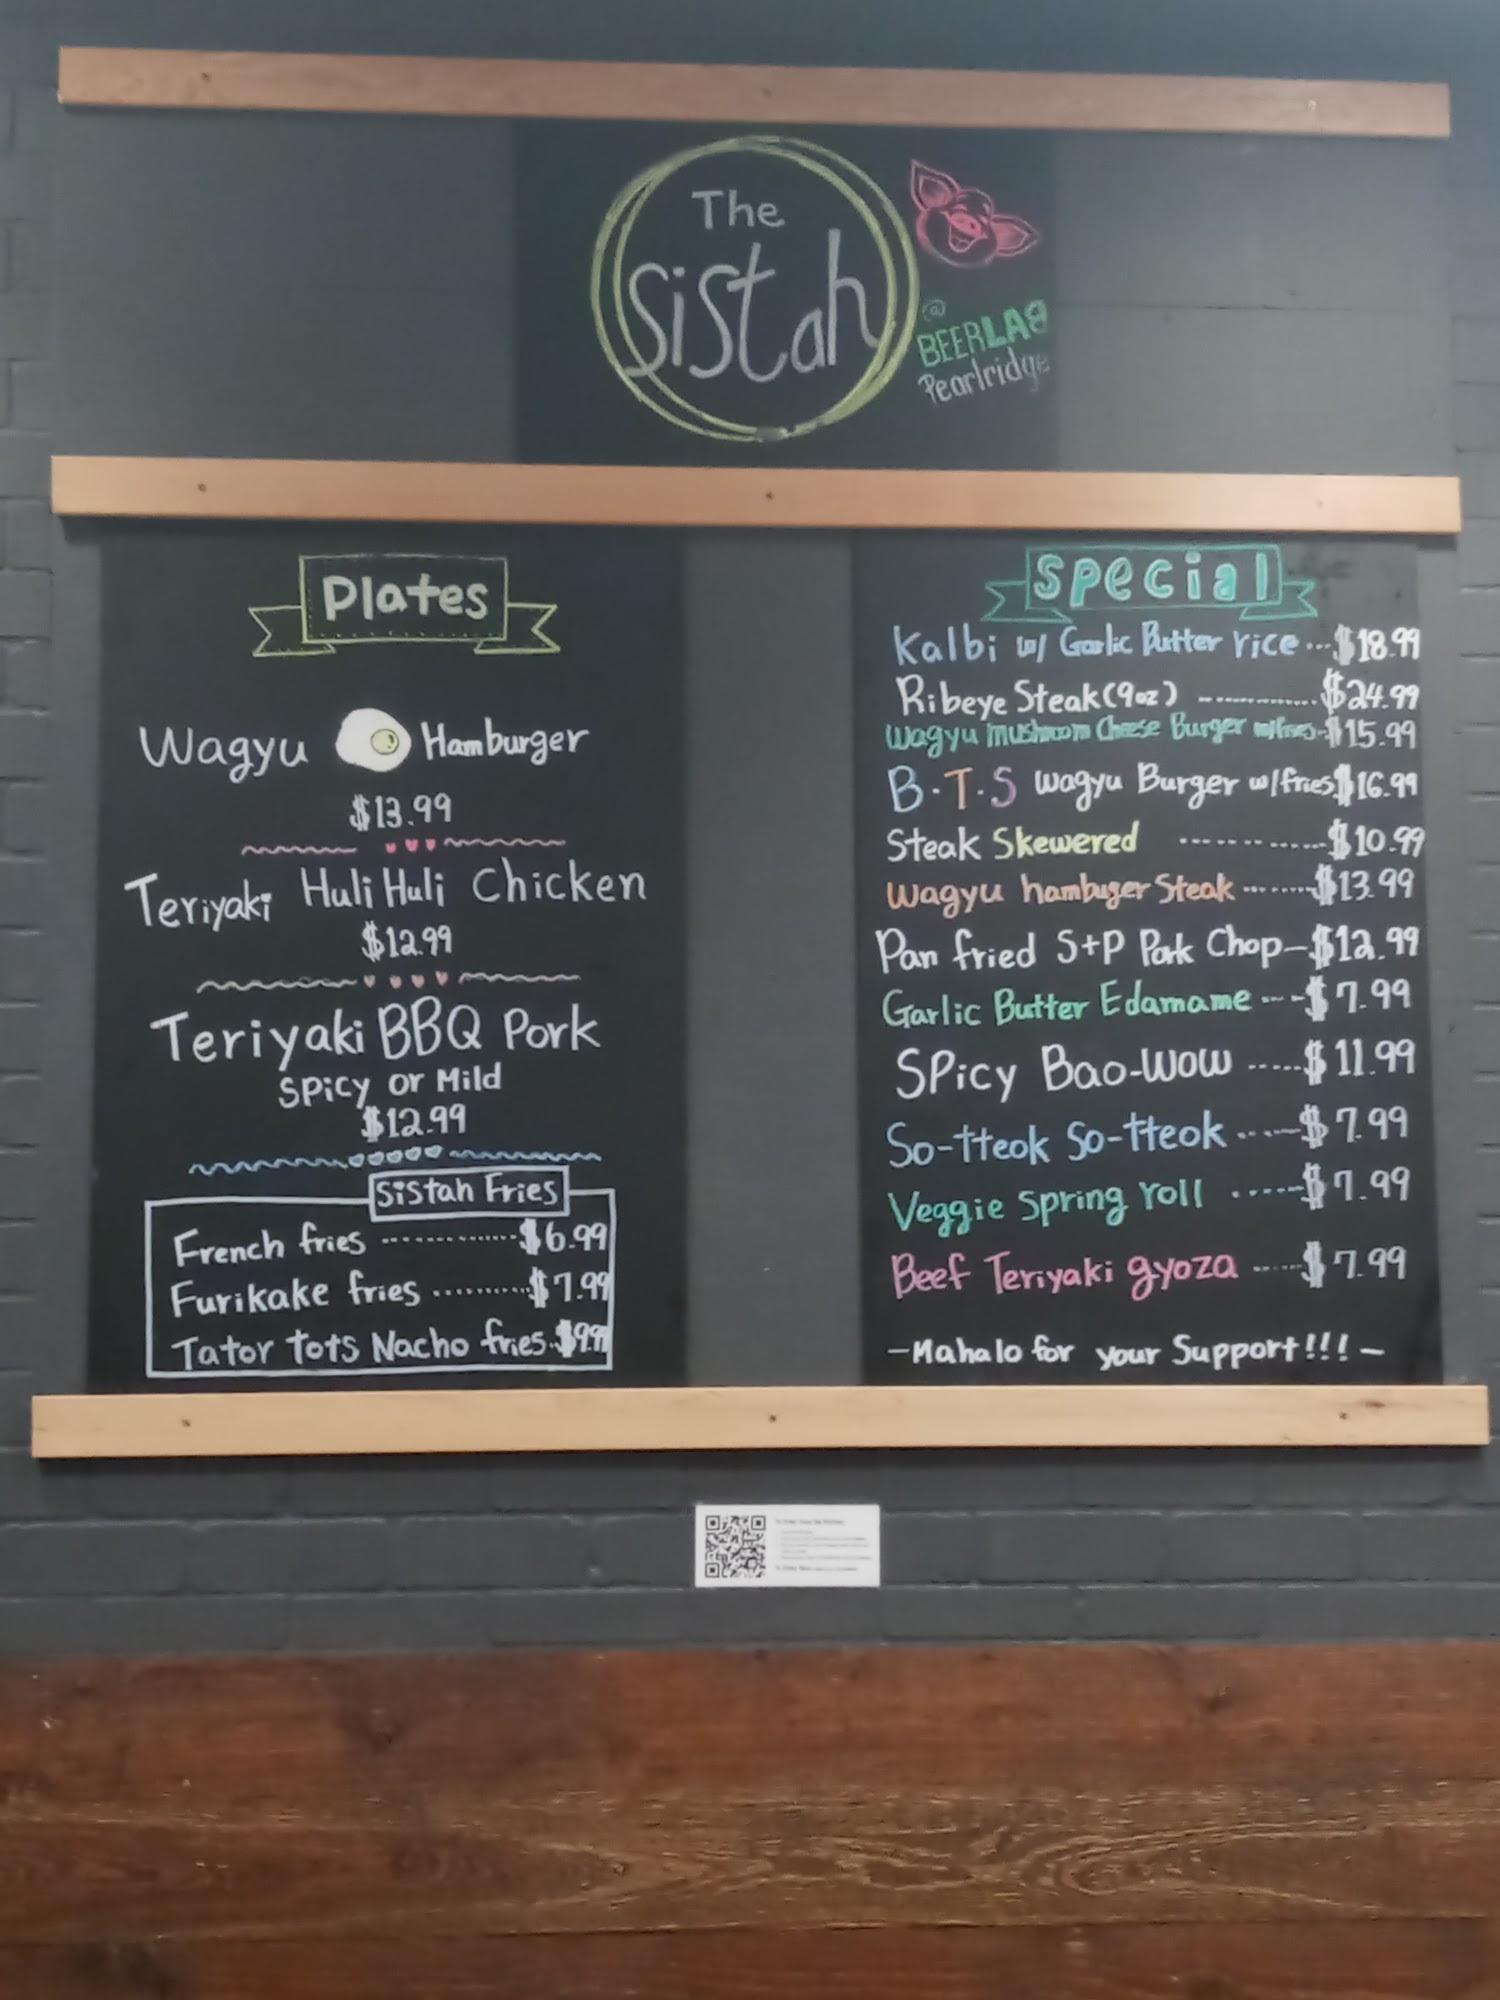 The
Sistah
@
BEERLAB
Pearlridge
Plates
Wagyu Hamburger
$13.99
Teriyaki Huli Huli Chicken
$12.99
Teriyaki BBQ Pork
Spicy or Mild
$12.99
Sistah Fries
French fries ------------- $6.99
Furikake fries .......... $7.99
Tator tots Nacho fries.. $9.99
Special
Kalbi w/ Garlic Butter rice --- $18.99
Ribeye Steak (9oz) ------------- $24.99
Wagyu mushroom Cheese Burger w/fries-$15.99
B.T.S Wagyu Burger w/fries $16.99
Steak Skewered ------------- $10.99
Wagyu hambuger Steak ------- $13.99
Pan fried S+P Pork Chop - $12.99
Garlic Butter Edamame --- $7.99
Spicy Bao-wow ----- $11.99
So-tteok So-tteok ----- $7.99
Veggie Spring roll ------ $7.99
Beef Teriyaki gyoza ----- $7.99
-Mahalo for your Support!!!-